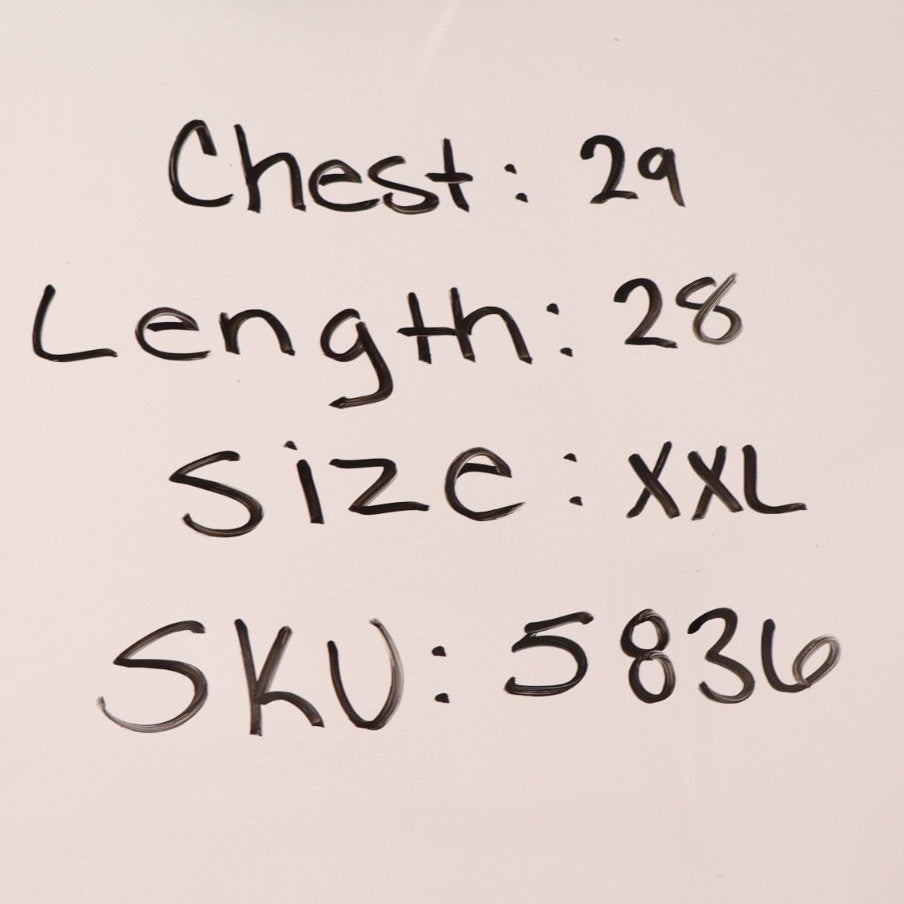 Chest: 29
Length: 28
Size: XXL
SKU: 5836